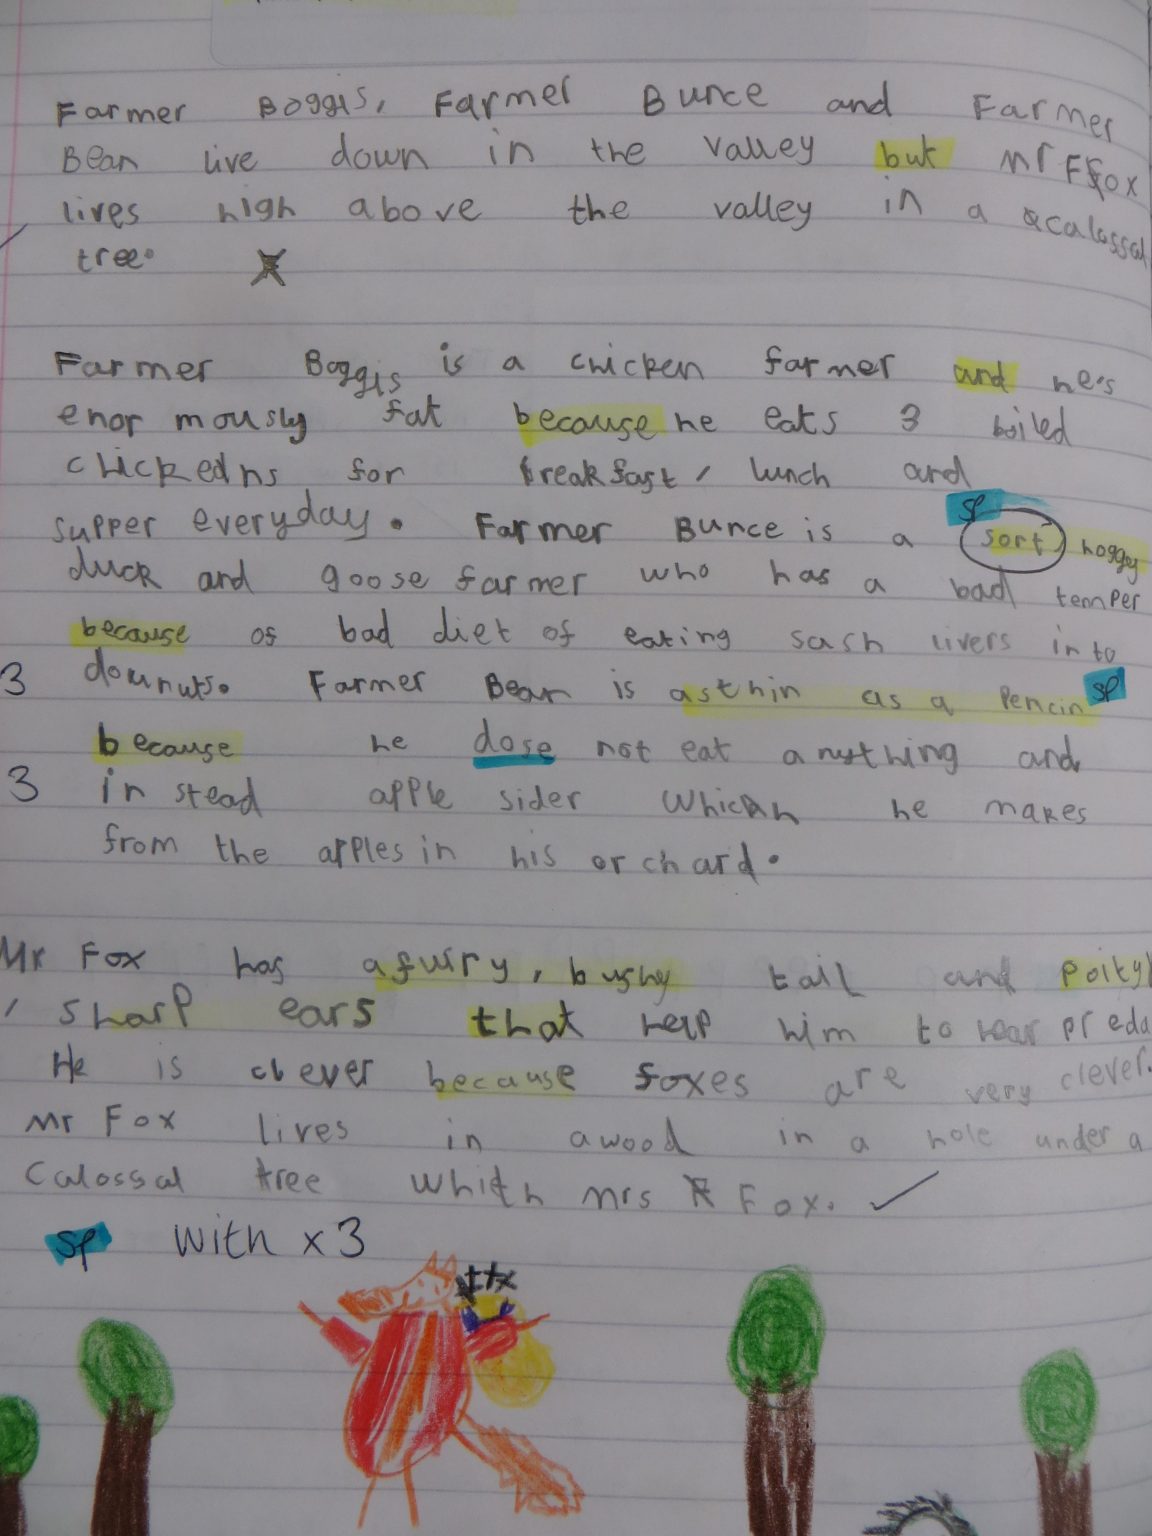 Farmer Boggis, Farmer Bunce and Farmer
Bean live down in the valley but Mr Fox
lives high above the valley in a calossal
tree.
Farmer Boggis is a chicken farmer and he's
enormously fat because he eats 3 boiled
chickedns for breakfast, lunch and
supper everyday. Farmer Bunce is a sort noggy
sp
duck and goose farmer who has a bad temper
because of bad diet of eating sash livers into
3 dounuts. Farmer Bean is as thin as a pencin sp
because he dose not eat anything and
3 in stead apple sider which he makes
from the apples in his orchard.
Mr Fox has a furry, bushy tail and
sharp ears that help him to hear preda
He is clever because foxes are very clever.
Mr Fox lives in a wood in a hole under a
Calossal tree whith mrs Fox.
sp with x3